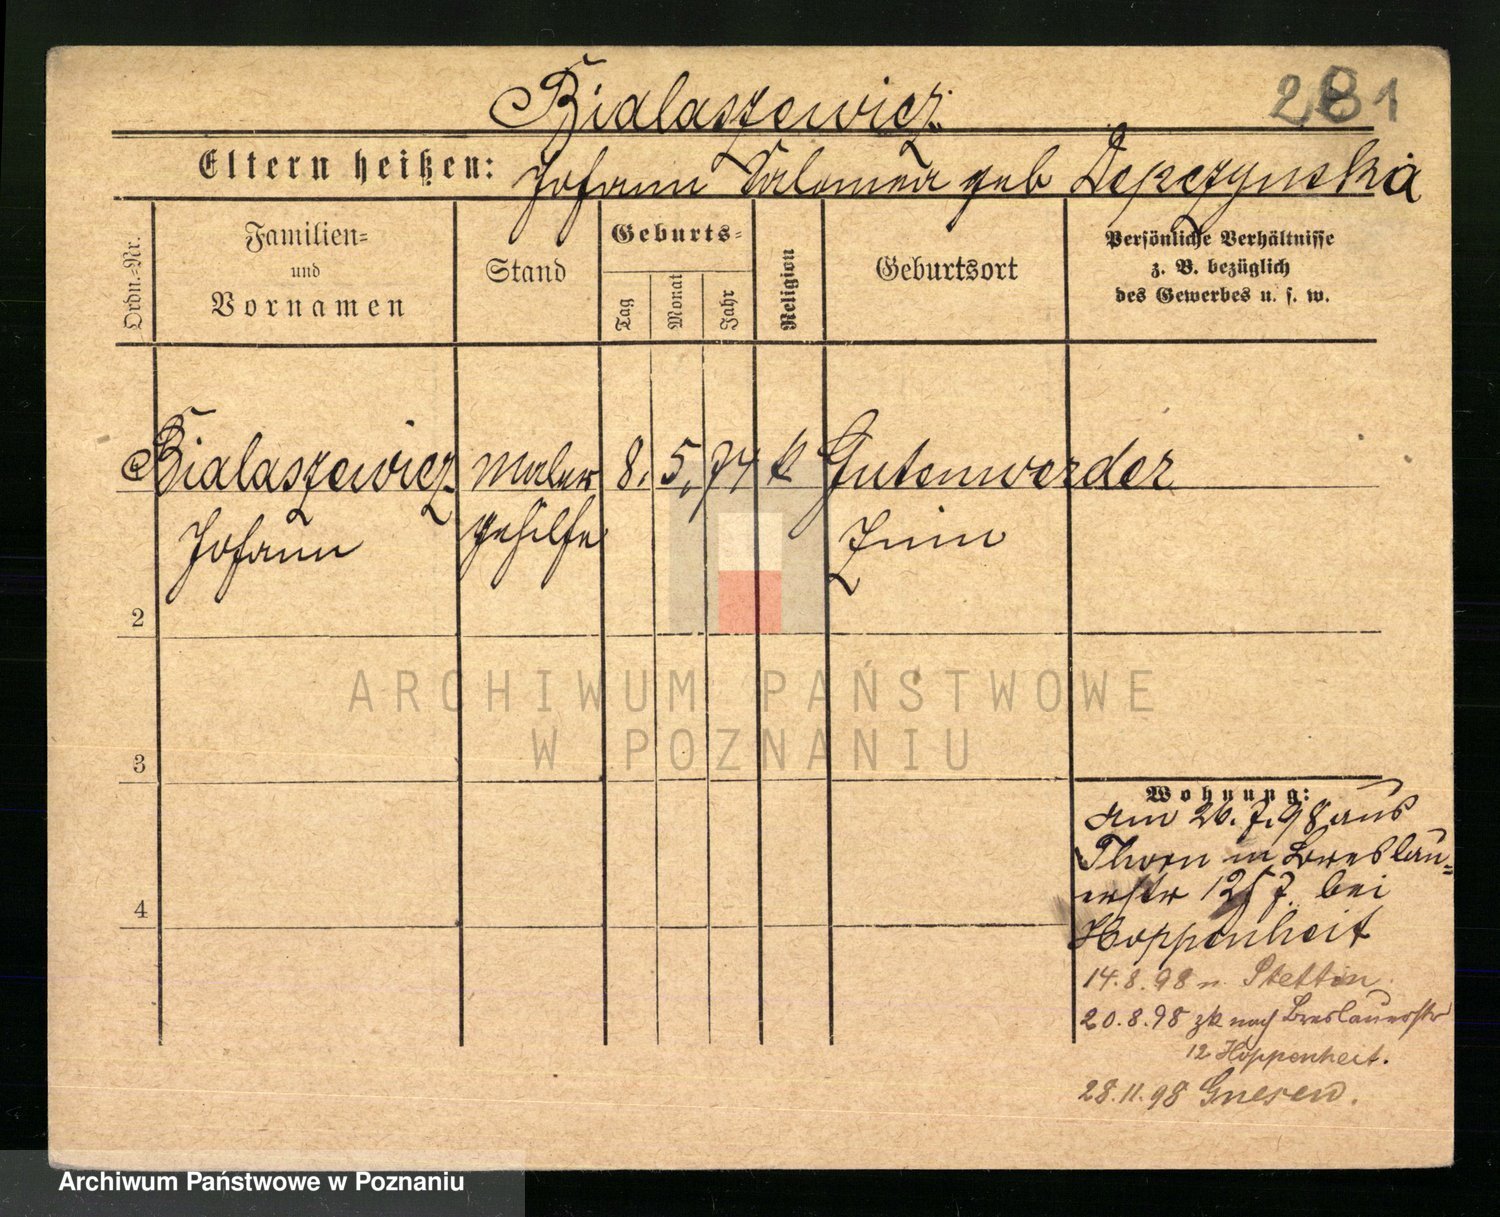 Bialaszewicz
281
Eltern heißen: Johann Salomea geb Depczynska
Ordn.-Nr.
Familien-
und
Vornamen
Stand
Geburts-
Tag
Monat
Jahr
Religion
Geburtsort
Persönliche Verhältnisse
z. B. bezüglich
des Gewerbes u. s. w.
Bialaszewicz Maler 8. 5. 74 k Gutenwerder
Johann gehilfe Znin
2
3
4
Wohnung:
am 26.7.98 aus
Thorn in Breslau-
erstr 12 bei
Hoppenheit
14.8.98 n Stettin
20.8.98 zk nach Breslauerstr
12 Hoppenheit.
28.11.98 Gnesen.
ARCHIWUM PAŃSTWOWE
W POZNANIU
Archiwum Państwowe w Poznaniu